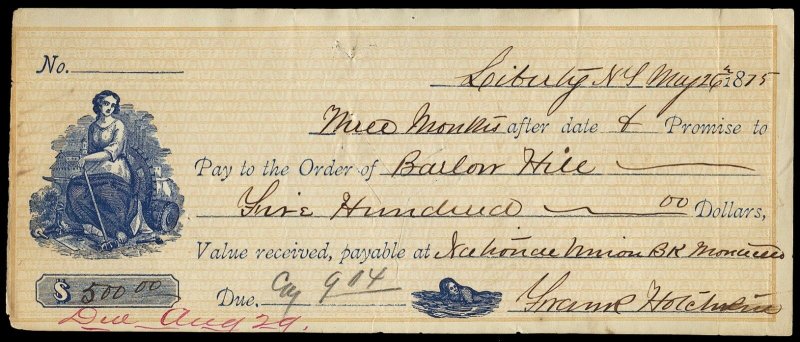 No.
Liberty N Y May 26th 1875
Three Months after date I Promise to
Pay to the Order of Barlow Hill
Five Hundred 00 Dollars,
Value received, payable at National Union BK Monticello
$ 500 00 Due. 904 Frank
Due Aug 29.